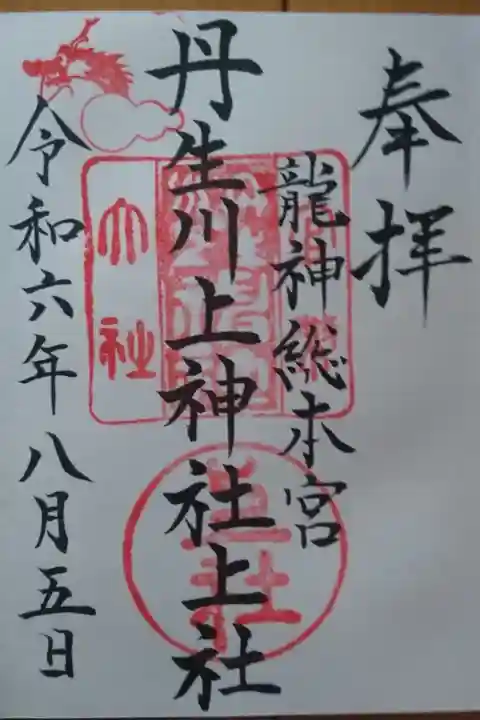 奉拝
龍神総本宮
丹生川上神社上社
令和六年八月五日
大社